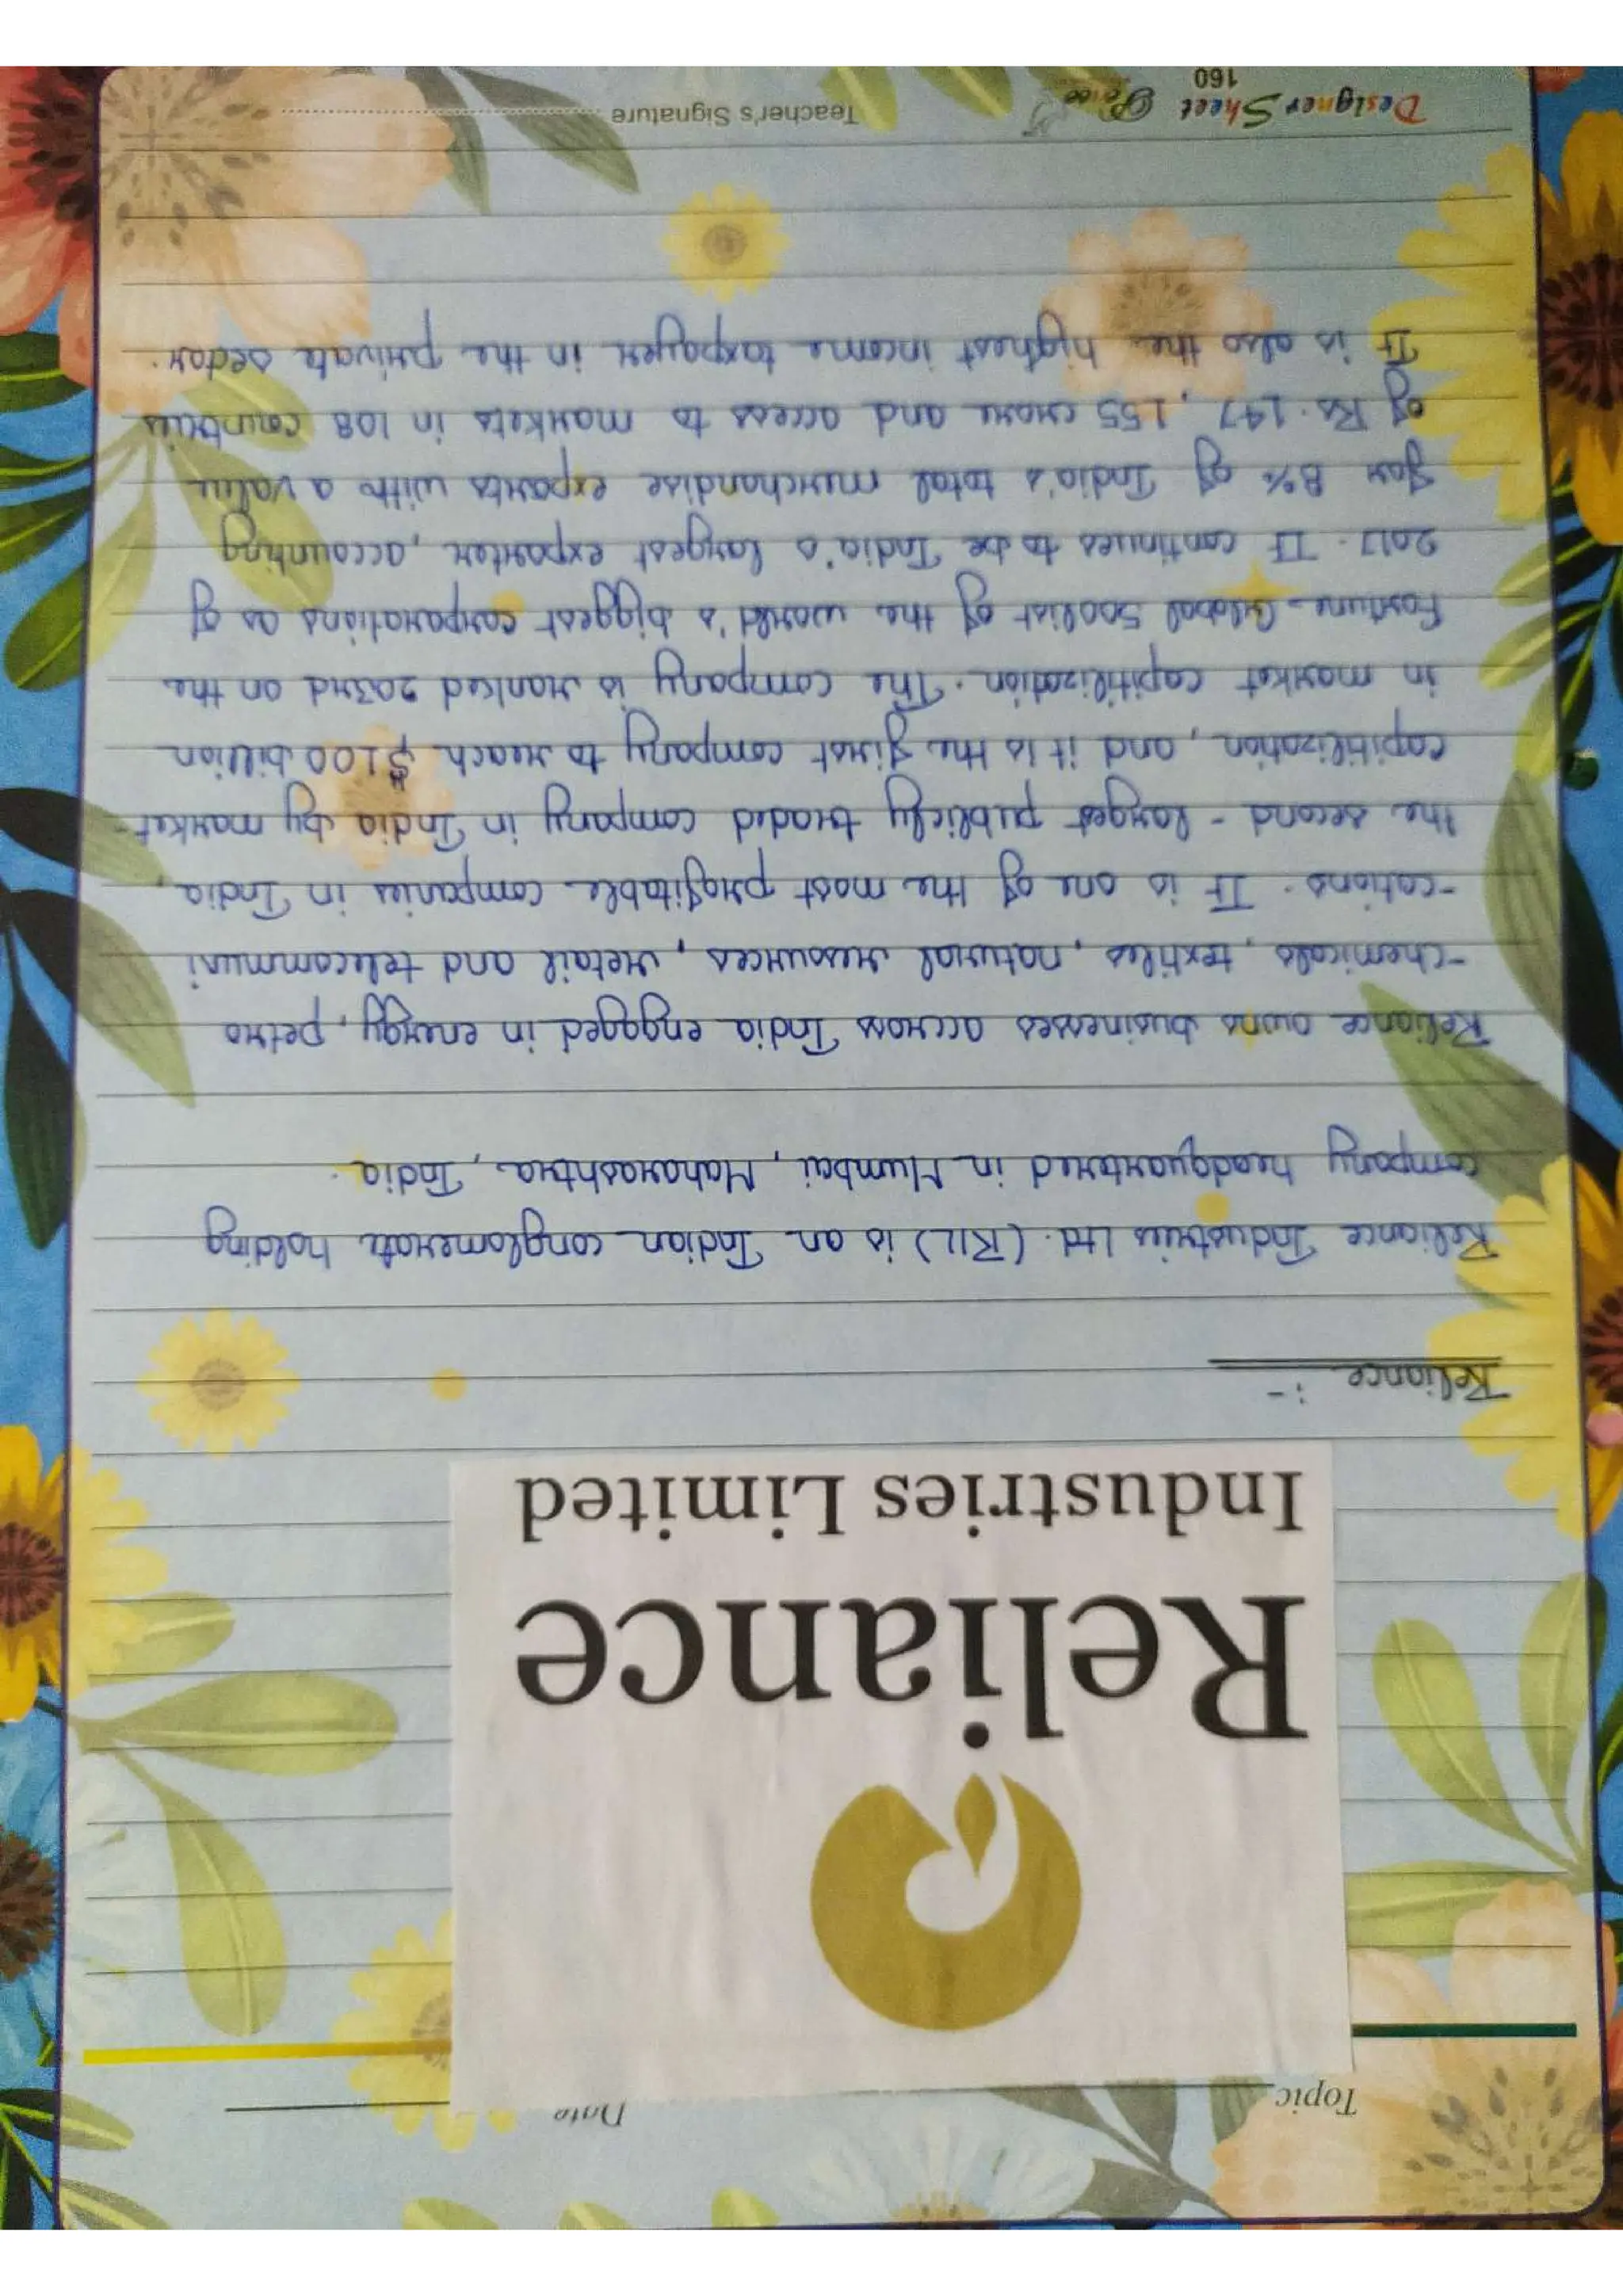 Topic
Date
Reliance
Industries Limited
Reliance :-
Reliance Industries Ltd. (RIL) is an Indian conglomerate holding
company headquartered in Mumbai, Maharashtra, India.
Reliance owns businesses accross India engaged in energy, petro
-chemicals, textiles, natural resources, retail and telecommuni
-cations. It is one of the most profitable companies in India,
the second - largest publicly traded company in India by market
capitilization, and it is the first company to reach $100 billion
in market capitilization. The company is ranked 203rd on the
Fortune Global 500list of the world's biggest corporations as of
2017. It continues to be India's largest exporter, accounting
for 8% of India's total merchandise exports with a value
of Rs. 147, 155 crore and access to markets in 108 countries
It is also the highest income taxpayer in the private sector.
Designer Sheet
160
Teacher's Signature